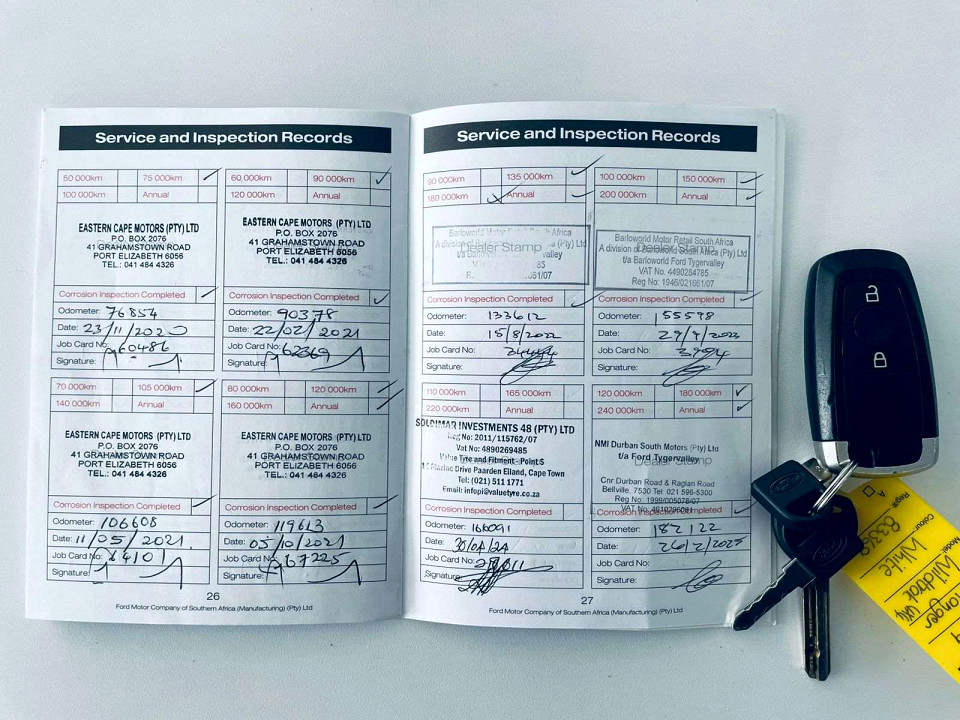 Service and Inspection Records
50 000km 75 000km
100 000km Annual
EASTERN CAPE MOTORS (PTY) LTD
P.O. BOX 2076
41 GRAHAMSTOWN ROAD
PORT ELIZABETH 6056
TEL.: 041 484 4326
Corrosion Inspection Completed
Odometer: 76854
Date: 23/11/2020
Job Card No: 60486
Signature:
60 000km 90 000km
120 000km Annual
EASTERN CAPE MOTORS (PTY) LTD
P.O. BOX 2076
41 GRAHAMSTOWN ROAD
PORT ELIZABETH 6056
TEL.: 041 484 4326
Corrosion Inspection Completed
Odometer: 90378
Date: 22/02/2021
Job Card No: 62369
Signature:
70 000km 105 000km
140 000km Annual
EASTERN CAPE MOTORS (PTY) LTD
P.O. BOX 2076
41 GRAHAMSTOWN ROAD
PORT ELIZABETH 6056
TEL.: 041 484 4326
Corrosion Inspection Completed
Odometer: 106608
Date: 11/05/2021
Job Card No: 64101
Signature:
80 000km 120 000km
160 000km Annual
EASTERN CAPE MOTORS (PTY) LTD
P.O. BOX 2076
41 GRAHAMSTOWN ROAD
PORT ELIZABETH 6056
TEL.: 041 484 4326
Corrosion Inspection Completed
Odometer: 119613
Date: 05/10/2021
Job Card No: 67225
Signature:
26
Ford Motor Company of Southern Africa (Manufacturing) (Pty) Ltd
Service and Inspection Records
90 000km 135 000km
180 000km Annual
Dealer Stamp
Corrosion Inspection Completed
Odometer: 133612
Date: 15/8/2022
Job Card No:
Signature:
100 000km 150 000km
200 000km Annual
Barloworld Motor Retail South Africa
A division of Barloworld South Africa (Pty) Ltd
Dealer Stamp
t/a Barloworld Ford Tygervalley
VAT No. 4490284785
Reg No: 1946/021661/07
Corrosion Inspection Completed
Odometer: 155598
Date:
Job Card No:
Signature:
110 000km 165 000km
220 000km Annual
SOLDIMAR INVESTMENTS 48 (PTY) LTD
Reg No: 2011/115762/07
Vat No: 4890269485
Value Tyre and Fitment - Point S
Marine Drive Paarden Eiland, Cape Town
Tel: (021) 511 1771
Email: infopi@valuetyre.co.za
Corrosion Inspection Completed
Odometer: 166091
Date: 30/04/24
Job Card No:
Signature:
120 000km 180 000km
240 000km Annual
NMI Durban South Motors (Pty) Ltd
t/a Ford Tygervalley
Dealer Stamp
Cnr Durban Road & Raglan Road
Bellville, 7530 Tel: 021 596-5300
Reg No: 1999/005078/07
Corrosion Inspection Completed
Odometer: 182122
Date: 26/2/2025
Job Card No:
Signature:
27
Ford Motor Company of Southern Africa (Manufacturing) (Pty) Ltd
Reg#
Colour: White
Model: Wildtrak